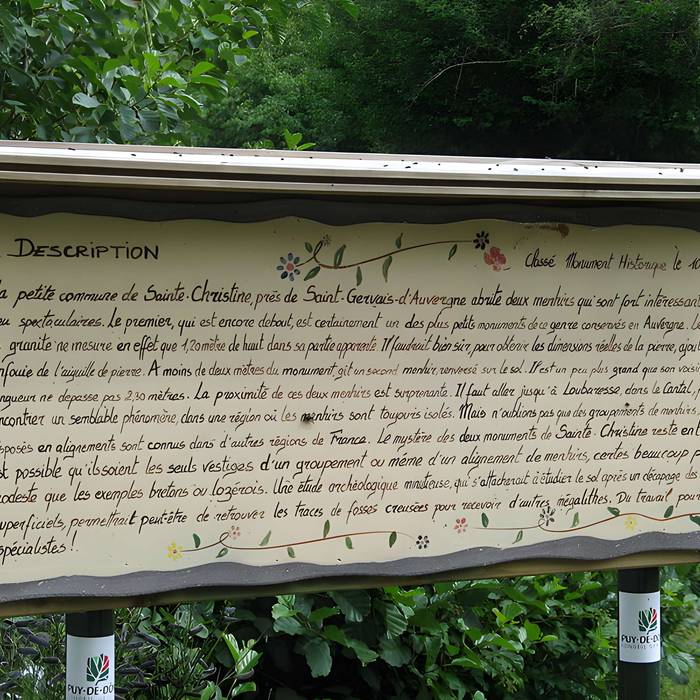 DESCRIPTION
Classé Monument Historique le 10
la petite commune de Sainte-Christine, près de Saint-Gervais-d'Auvergne abrite deux menhirs qui sont fort intéressant
eu spectaculaires. Le premier, qui est encore debout, est certainement un des plus petits monuments de ce genre conservés en Auvergne. L
granite ne mesure en effet que 1,20 mètre de haut dans sa partie apparente. Il faudrait bien sûr, pour obtenir les dimensions réelles de la pierre, ajout
nfouie de l'aiguille de pierre. A moins de deux mètres du monument, gît un second menhir, renversé sur le sol. Il est un peu plus grand que son voisi
ngueur ne dépasse pas 2,30 mètres. La proximité de ces deux menhirs est surprenante. Il faut aller jusqu'à Loubaresse, dans le Cantal, p
ncontrer un semblable phénomène, dans une région où les menhirs sont toujours isolés. Mais n'oublions pas que des groupements de menhirs,
sposés en alignements sont connus dans d'autres régions de France. Le mystère des deux monuments de Sainte-Christine reste ent
st possible qu'ils soient les seuls vestiges d'un groupement ou même d'un alignement de menhirs, certes beaucoup p
odeste que les exemples bretons ou lozérois. Une étude archéologique minutieuse, qui s'attacherait à étudier le sol après un décapage des
uperficiels, permettrait peut-être de retrouver les traces de fosses creusées pour recevoir d'autres mégalithes. Du travail pour
spécialistes !
PUY-DE-DÔM
PUY-DE-DÔM